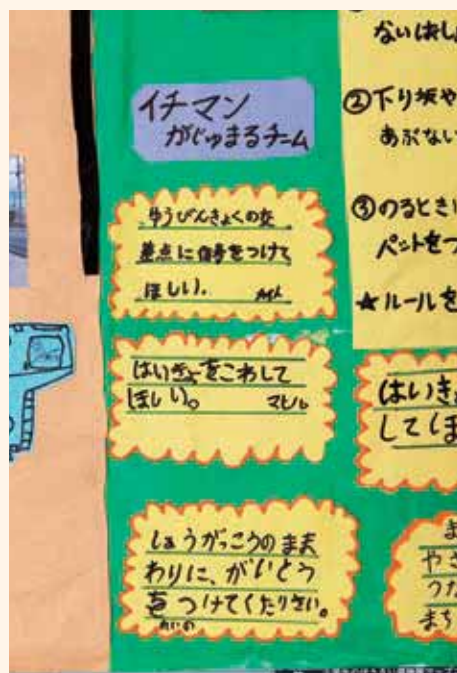 イチマン
がじゅまるチーム
ゆうびんきょくの交
差点に信号をつけて
ほしい.
はいきょをこわして
ほしい。
しょうがっこうのまま
わりに、がいとう
をつけてください。
ないほし
②下り坂や
あぶない
③のるとき
ペットをつ
★ルールを
はいき
してほ
ま
やさ
うた
まち